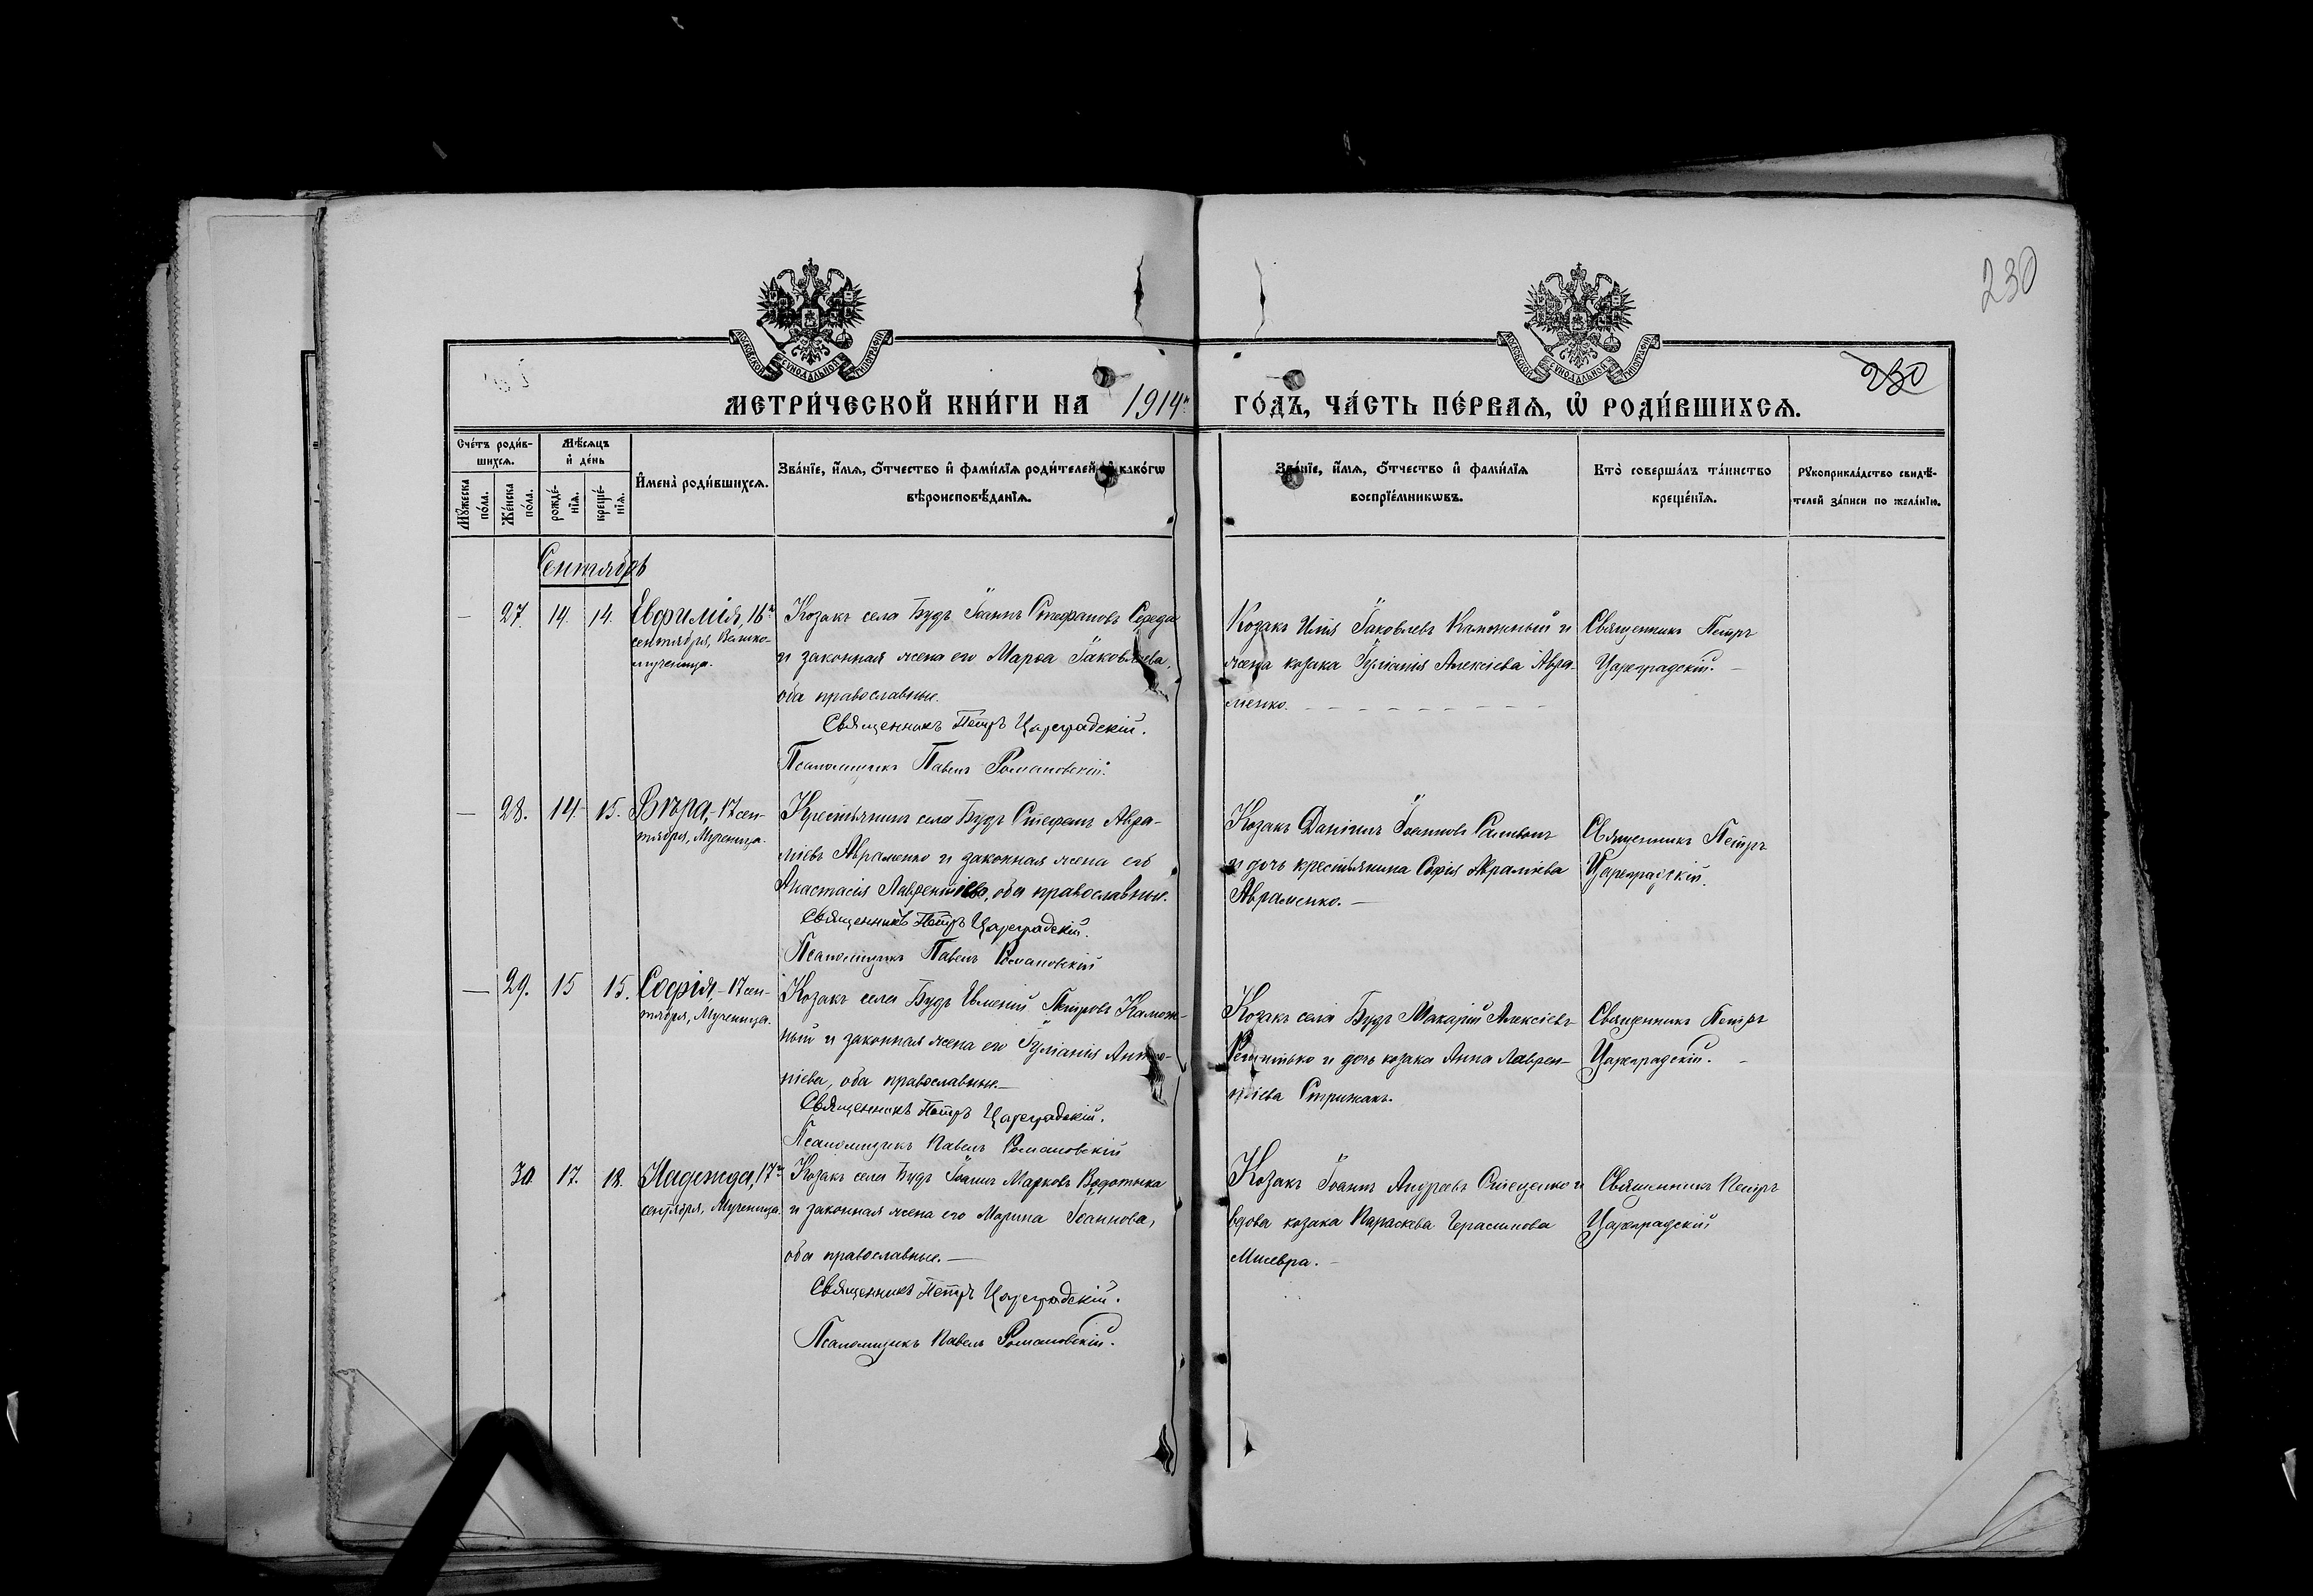 230
МОСКОВСКОЙ СѴНОДАЛЬНОЙ ТИПОГРАФІИ
МОСКОВСКОЙ СѴНОДАЛЬНОЙ ТИПОГРАФІИ
230
МЕТРИ́ЧЕСКОЙ КНИ́ГИ НА 1914й ГО́ДЪ, ЧА́СТЬ ПЕ́РВАЯ, Ѡ РОДИ́ВШИХСЯ.
Сче́тъ роди́в-
шихся.
Мѣ́сяцъ
и де́нь
Му́жеска по́ла.
Же́нска по́ла.
рожде́-
нїя.
креще́-
нїя.
Имена̀ роди́вшихся.
Зва́нїе, и́мя, о́тчество и фами́лїя роди́телей, и како́гѡ
вѣроисповѣ́данїя.
Зва́нїе, и́мя, о́тчество и фами́лїя
воспрїе́мникѡвъ.
Кто̀ соверша́лъ та́инство
креще́нїя.
Рукоприкла́дство свидѣ́-
телей за́писи по жела́нїю.
Сентябрь
— 27. 14. 14. Евфимія, 16го
сентября, Велико-
мученица.
Козакъ села Будъ Іоаннъ Стефановъ Середа
и законная жена его Марѳа Іаковлева,
оба православные.
Священникъ Петръ Цареградскій.
Псаломщикъ Павелъ Романовскій.
Козакъ Илія Іаковлевъ Каможный и
жена козака Іуліанія Алексіева Авра-
менко.
Священникъ Петръ
Цареградскій. —
— 28. 14. 15. Вѣра, - 17 сен-
тября, Мученица.
Крестьянинъ села Будъ Стефанъ Авра-
міевъ Авраменко и законная жена его
Анастасія Лаврентіева, оба православные.
Священникъ Петръ Цареградскій.
Псаломщикъ Павелъ Романовскій
Козакъ Даніилъ Іоанновъ
и дочь крестьянина Софія Авраміева
Авраменко. —
Священникъ Петръ
Цареградскій.
— 29. 15 15. Софія, - 17 сен-
тября, Мученица.
Козакъ села Будъ Евменій Петровъ Камож-
ный и законная жена его Іуліанія Анто-
ніева, оба православные. —
Священникъ Петръ Цареградскій.
Псаломщикъ Павелъ Романовскій
Козакъ села Будъ Макарій Алексіевъ
и дочь козака Анна Лаврен-
тіева Стрижакъ.
Священникъ Петръ
Цареградскій. —
30. 17. 18. Надежда, 17го
сентября, Мученица.
Козакъ села Будъ Іоаннъ Марковъ Водотыка
и законная жена его Марина Іоаннова,
оба православные. —
Священникъ Петръ Цареградскій.
Псаломщикъ Павелъ Романовскій.
Козакъ Іоаннъ Андреевъ Стеценко и
вдова козака Параскева Герасимова
Священникъ Петръ
Цареградскій